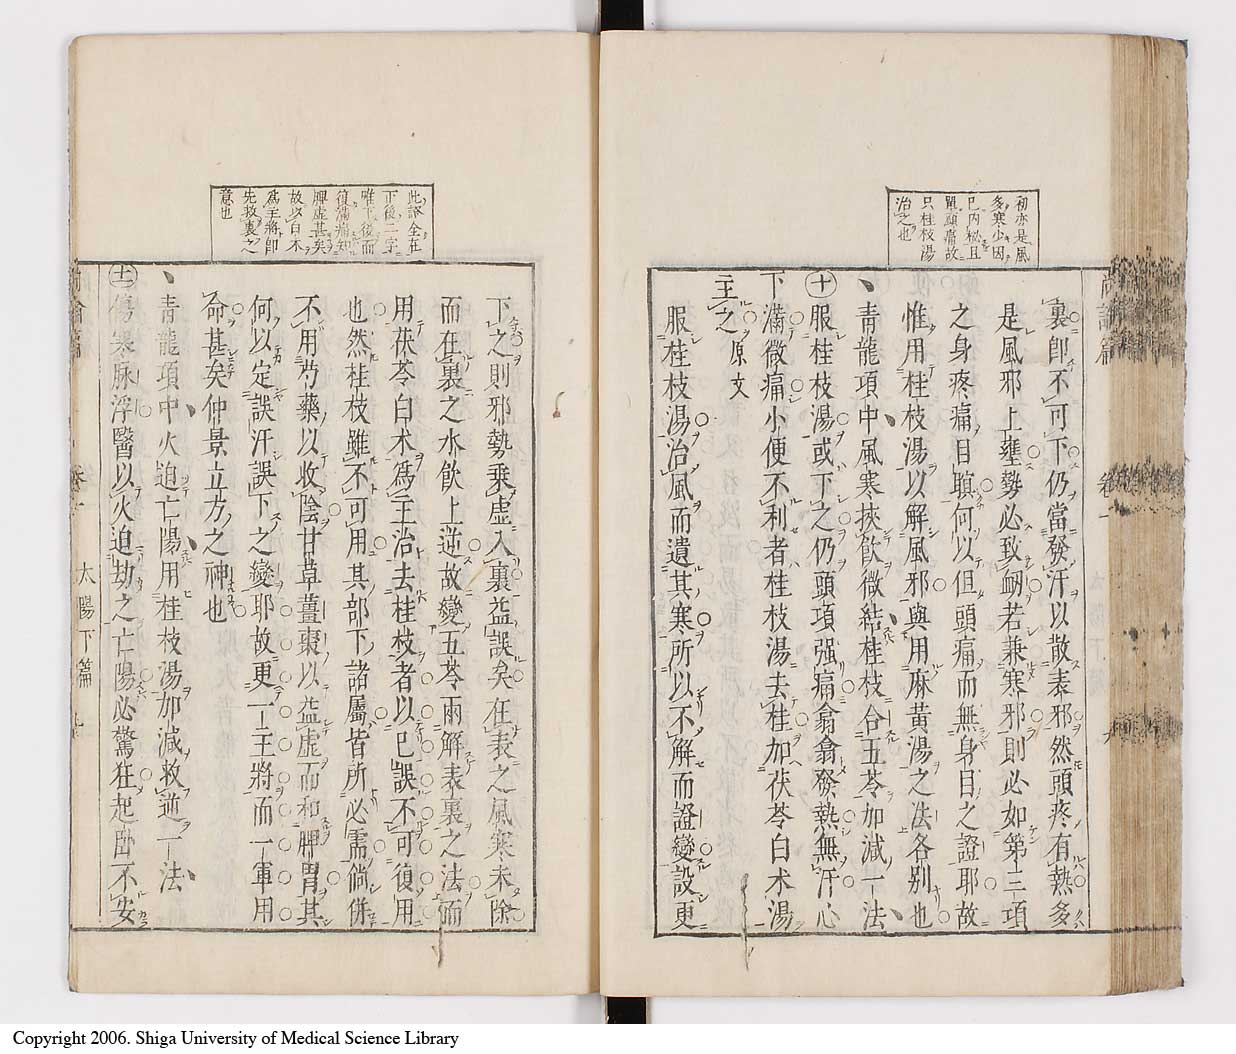 初亦是風
多寒少因
已内秘且
單頭痛故
只桂枝湯
治之也
裏卽不可下仍當發汗以散表邪然頭疼有熱多
是風邪上壅勢必致衂若兼寒邪則必如第三項
之身疼痛目瞋何以但頭痛而無身目之證耶故
惟用桂枝湯以解風邪與用麻黃湯之法各別也
青龍項中風寒挾飲微結桂枝合五苓加減一法
十 服桂枝湯或下之仍頭項强痛翕翕發熱無汗心
下滿微痛小便不利者桂枝湯去桂加茯苓白术湯
主之 原文
服桂枝湯治風而遺其寒所以不解而證變設更
此證全在
下後二字
唯下後而
復滿痛知
脾虛甚矣
故以白术
爲主將卽
先救裏之
意也
下之則邪勢乘虛入裏益誤矣在表之風寒未除
而在裏之水飲上逆故變五苓兩解表裏之法而
用茯苓白术爲主治去桂枝者以已誤不可復用
也然桂枝雖不可用其部下諸屬皆所必需倘併
不用芍藥以收陰甘草薑棗以益虛而和脾胃其
何以定誤汗誤下之變耶故更一主將而一軍用
命甚矣仲景立方之神也
青龍項中火迫亡陽用桂枝湯加減救逆一法
十一 傷寒脉浮醫以火迫劫之亡陽必驚狂起臥不安
太陽下篇